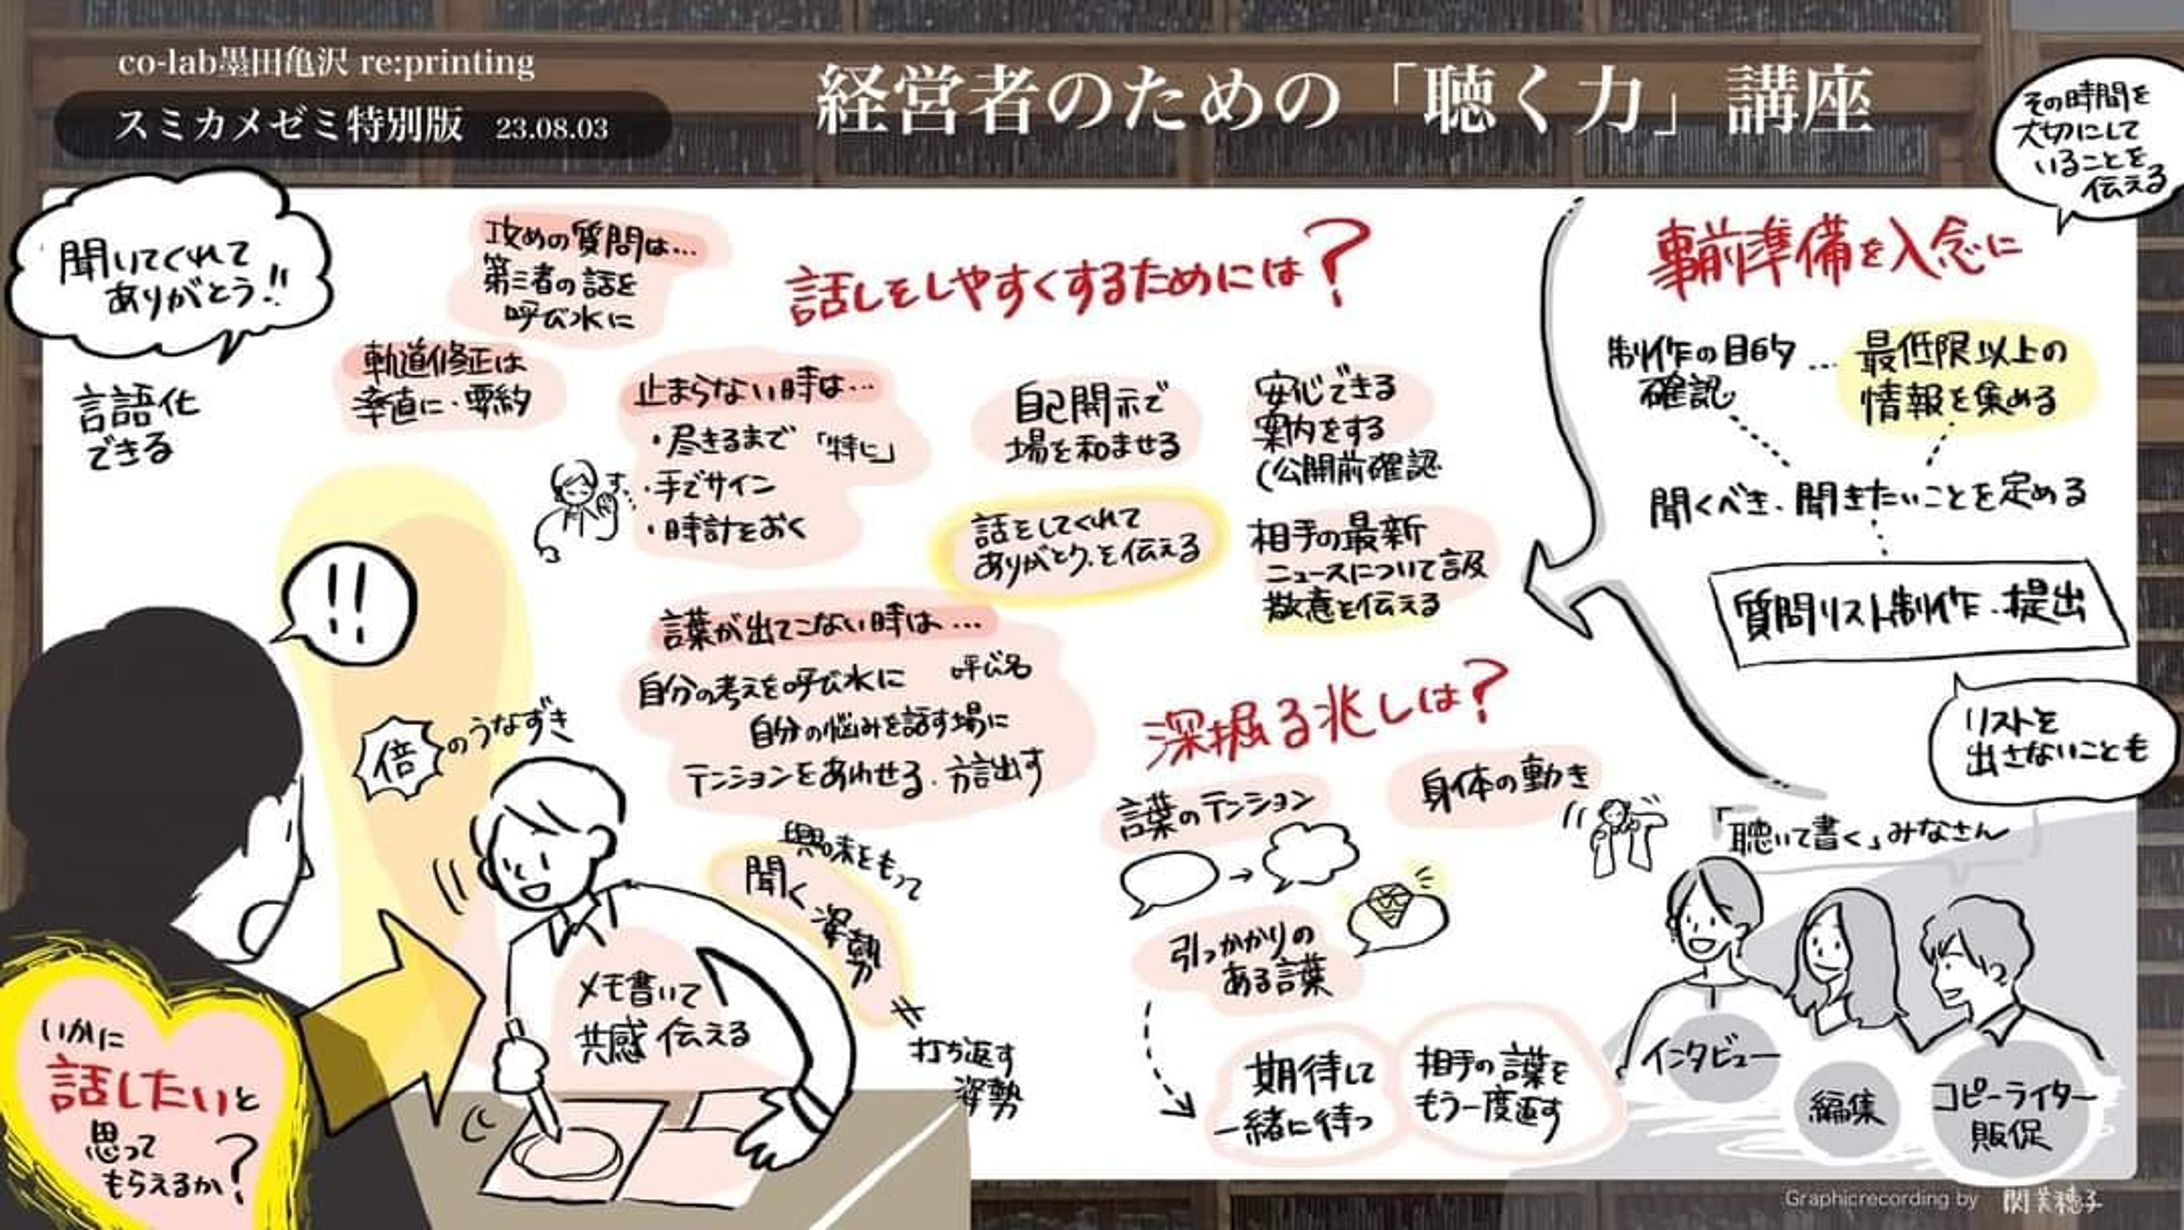 co-lab墨田亀沢 re:printing
スミカメゼミ特別版 23.08.03
経営者のための「聴く力」講座
その時間を
大切にして
いることを
伝える
聞いてくれて
ありがとう!!
言語化
できる
攻めの質問は…
第三者の話を
呼び水に
軌道修正は
率直に・要約
話しをしやすくするためには?
止まらない時は…
・尽きるまで「特に」
・手でサイン
・時計をおく
す…
自己開示で
場を和ませる
安心できる
案内をする
(公開前確認
話をしてくれて
ありがとう.を伝える
相手の最新
ニュースについて言及
敬意を伝える
言葉が出てこない時は…
自分の考えを呼び水に 呼び名
自分の悩みを話す場に
テンションをあわせる.方言出す
!!
倍のうなずき
興味をもって
聞く姿勢
≠
打ち返す
姿勢
メモ書いて
共感 伝える
いかに
話したいと
思って
もらえるか?
深掘る兆しは?
言葉のテンション
身体の動き
引っかかりの
ある言葉
期待して
一緒に待つ
相手の言葉を
もう一度返す
事前準備を入念に
制作の目的…
確認
最低限以上の
情報を集める
聞くべき.聞きたいことを定める
質問リスト制作.提出
リストを
出さないことも
「聴いて書く」みなさん
インタビュー
編集
コピーライター
販促
Graphicrecording by